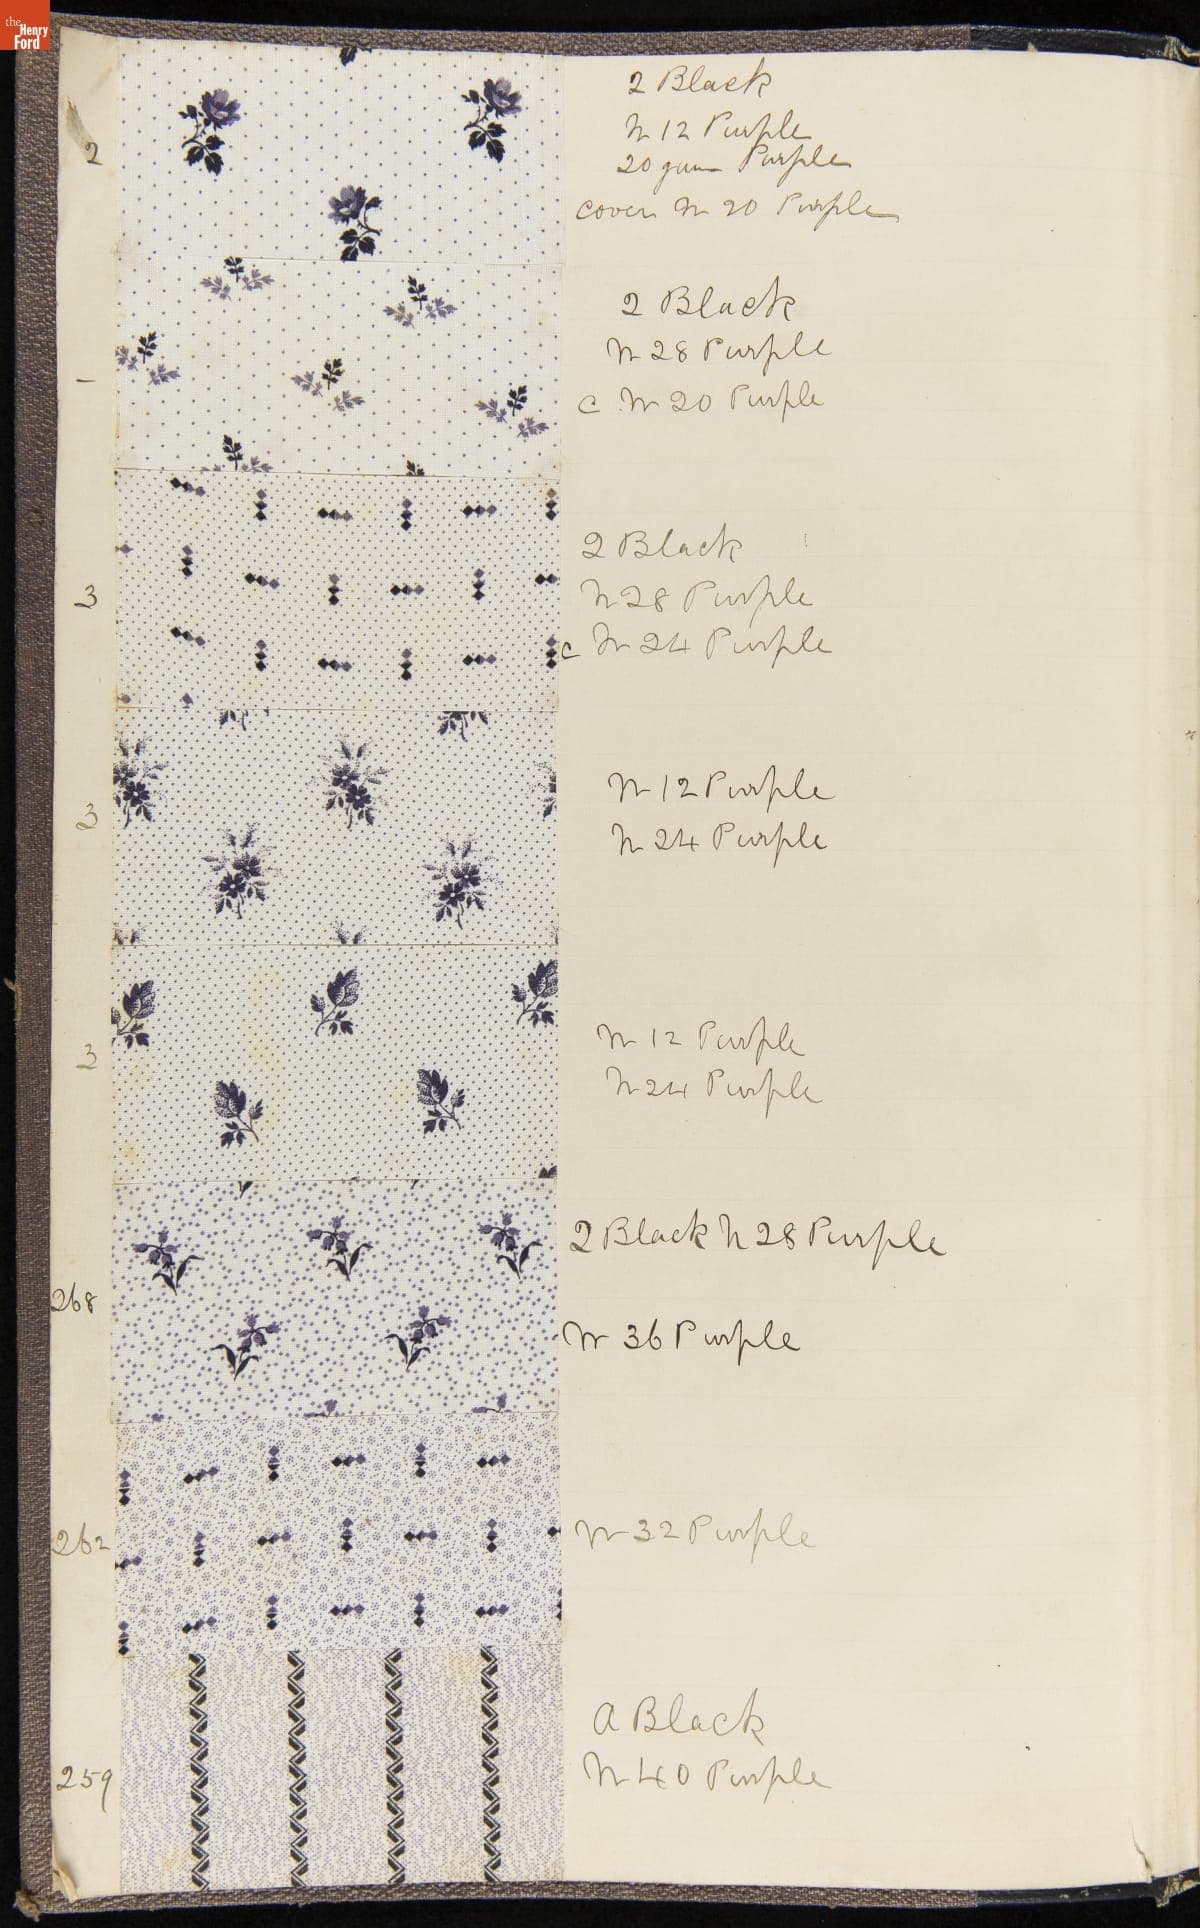 the
Henry
Ford
2
2 Black
N 12 Purple
20 gum Purple
cover N 20 Purple
2 Black
N 28 Purple
c N 20 Purple
3
2 Black
N 28 Purple
c N 24 Purple
3
N 12 Purple
N 24 Purple
3
N 12 Purple
N 24 Purple
268
2 Black N 28 Purple
N 36 Purple
262
N 32 Purple
259
A Black
N 40 Purple